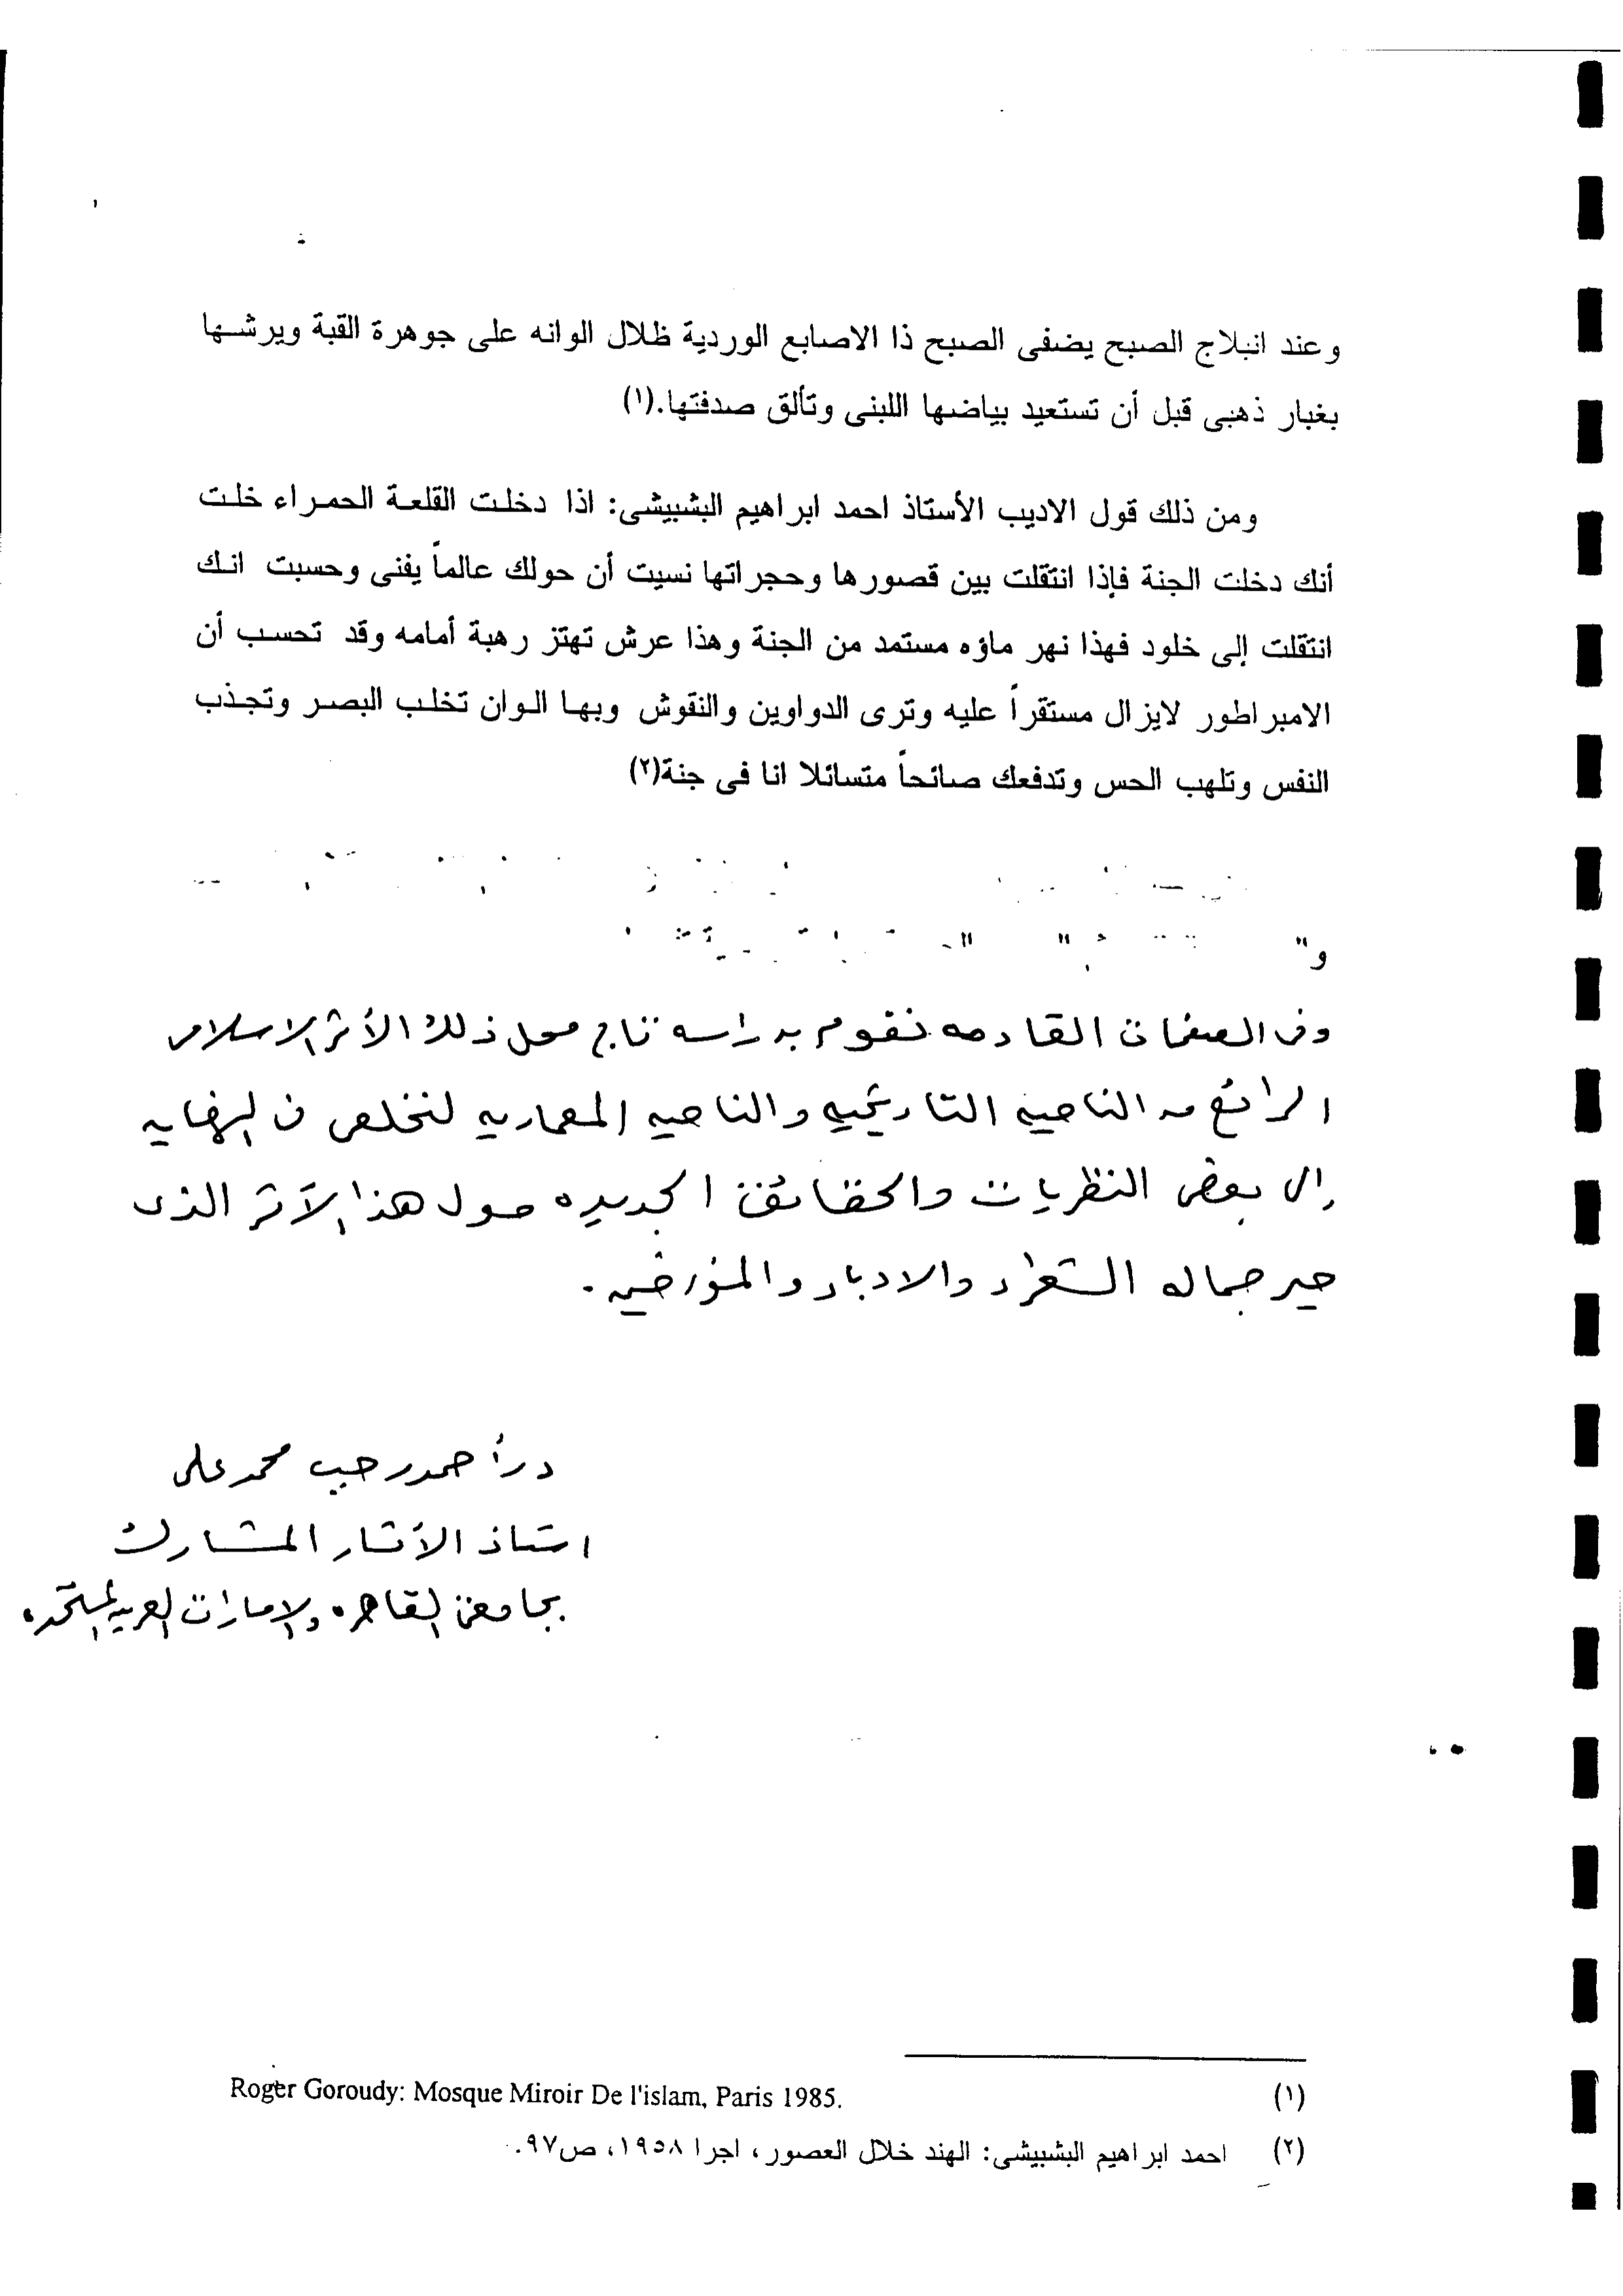 وعند انبلاج الصبح يضفى الصبح ذا الاصابع الوردية ظلال الوانه على جوهرة القبة ويرشها
بغبار ذهبى قبل أن تستعيد بياضها اللبنى وتألق صدفتها.(١)
ومن ذلك قول الاديب الأستاذ احمد ابراهيم البشبيشى: اذا دخلت القلعة الحمراء خلت
أنك دخلت الجنة فإذا انتقلت بين قصورها وحجراتها نسيت أن حولك عالماً يفنى وحسبت انك
انتقلت إلى خلود فهذا نهر ماؤه مستمد من الجنة وهذا عرش تهتز رهبة أمامه وقد تحسب أن
الامبراطور لايزال مستقراً عليه وترى الدواوين والنقوش وبها الوان تخلب البصر وتجذب
النفس وتلهب الحس وتدفعك صائحاً متسائلا انا فى جنة(٢)
وفى الصفحات القادمه نقوم بدراسه تاج محل ذلك الأثر الاسلامى
الرائع من الناحيه التاريخيه والناحيه المعماريه لنخلص فى النهايه
إلى بعض النظريات والحقائق الجديده حول هذا الأثر الذى
حير جماله الشعراء والادباء والمؤرخين.
د. أحمد رجب محمد على
استاذ الأثار المشارك
بجامعتى القاهره والامارات العربيه المتحده
(١) Roger Goroudy: Mosque Miroir De l'islam, Paris 1985.
(٢) احمد ابراهيم البشبيشى: الهند خلال العصور، اجرا ١٩٥٨، ص٩٧.